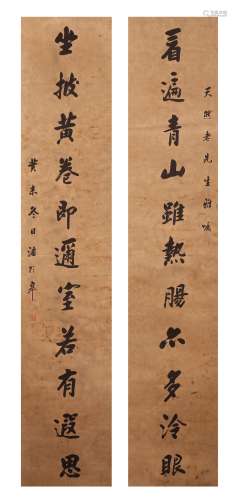 天照老先生雅囑
看遍青山雖熱腸亦多冷眼
坐披黃卷即邇室若有遐思
癸未冬日潘齡皋